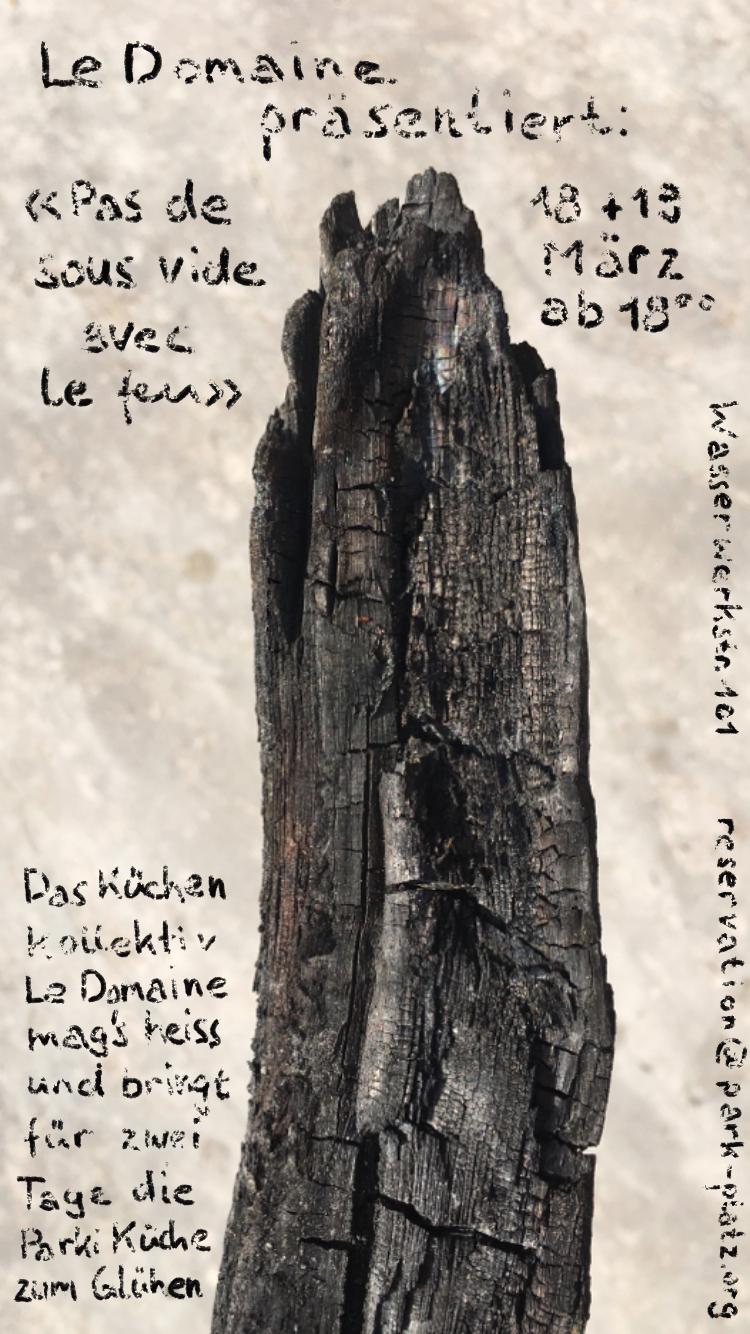 Le Domaine
präsentiert:
«Pas de
sous vide
avec
le feu»
18 + 19
März
ab 18°°
Wasserwerkstr. 101
reservation@park-platz.org
Das Küchen
kollektiv
Le Domaine
mag's heiss
und bringt
für zwei
Tage die
Parki Küche
zum Glühen